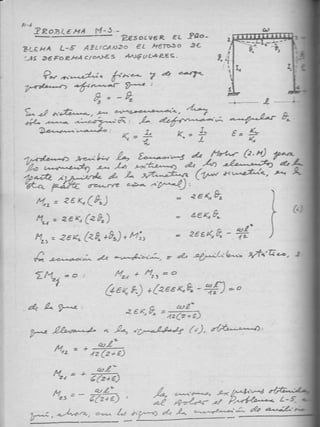 PROBLEMA M-3.-
RESOLVER EL PRO-
BLEMA L-5 APLICANDO EL METODO DE
LAS DEFORMACIONES ANGULARES.
Por simetría física y de carga
podemos afirmar que:
θ₂ = - θ₃
En el sistema, en consecuencia, hay
sólo una incógnita: la deformación angular θ₂
Denominando:
K₁ = I₁/h K₂ = I₂/L E = K₂/K₁
podemos escribir las Ecuaciones de Mohr (2.M) para
los momentos en los extremos de los elementos de la
parte izquierda de la estructura (por simetría, en la
otra parte ocurre cosa igual):
M₁₂ = 2EK₁(θ₂) = 2EK₁θ₂
M₂₁ = 2EK₁(2θ₂) = 4EK₁θ₂
M₂₃ = 2EK₂(2θ₂+θ₃)+M°₂₃ = 2EEK₁θ₂ - ωl²/12
La ecuación de condición, o de equilibrio estática,
ΣM₂ = 0 : M₂₁ + M₂₃ = 0
(4EK₁θ₂) + (2EEK₁θ₂ - ωl²/12) = 0
de la que:
2EK₁θ₂ = ωl²/12(2+E)
que llevando a las igualdades (c), obtenemos:
M₁₂ = + ωl²/12(2+E)
M₂₁ = + ωl²/6(2+E)
M₂₃ = - ωl²/6(2+E) , las mismas expresiones obtenidas
al resolver el Problema L-5,